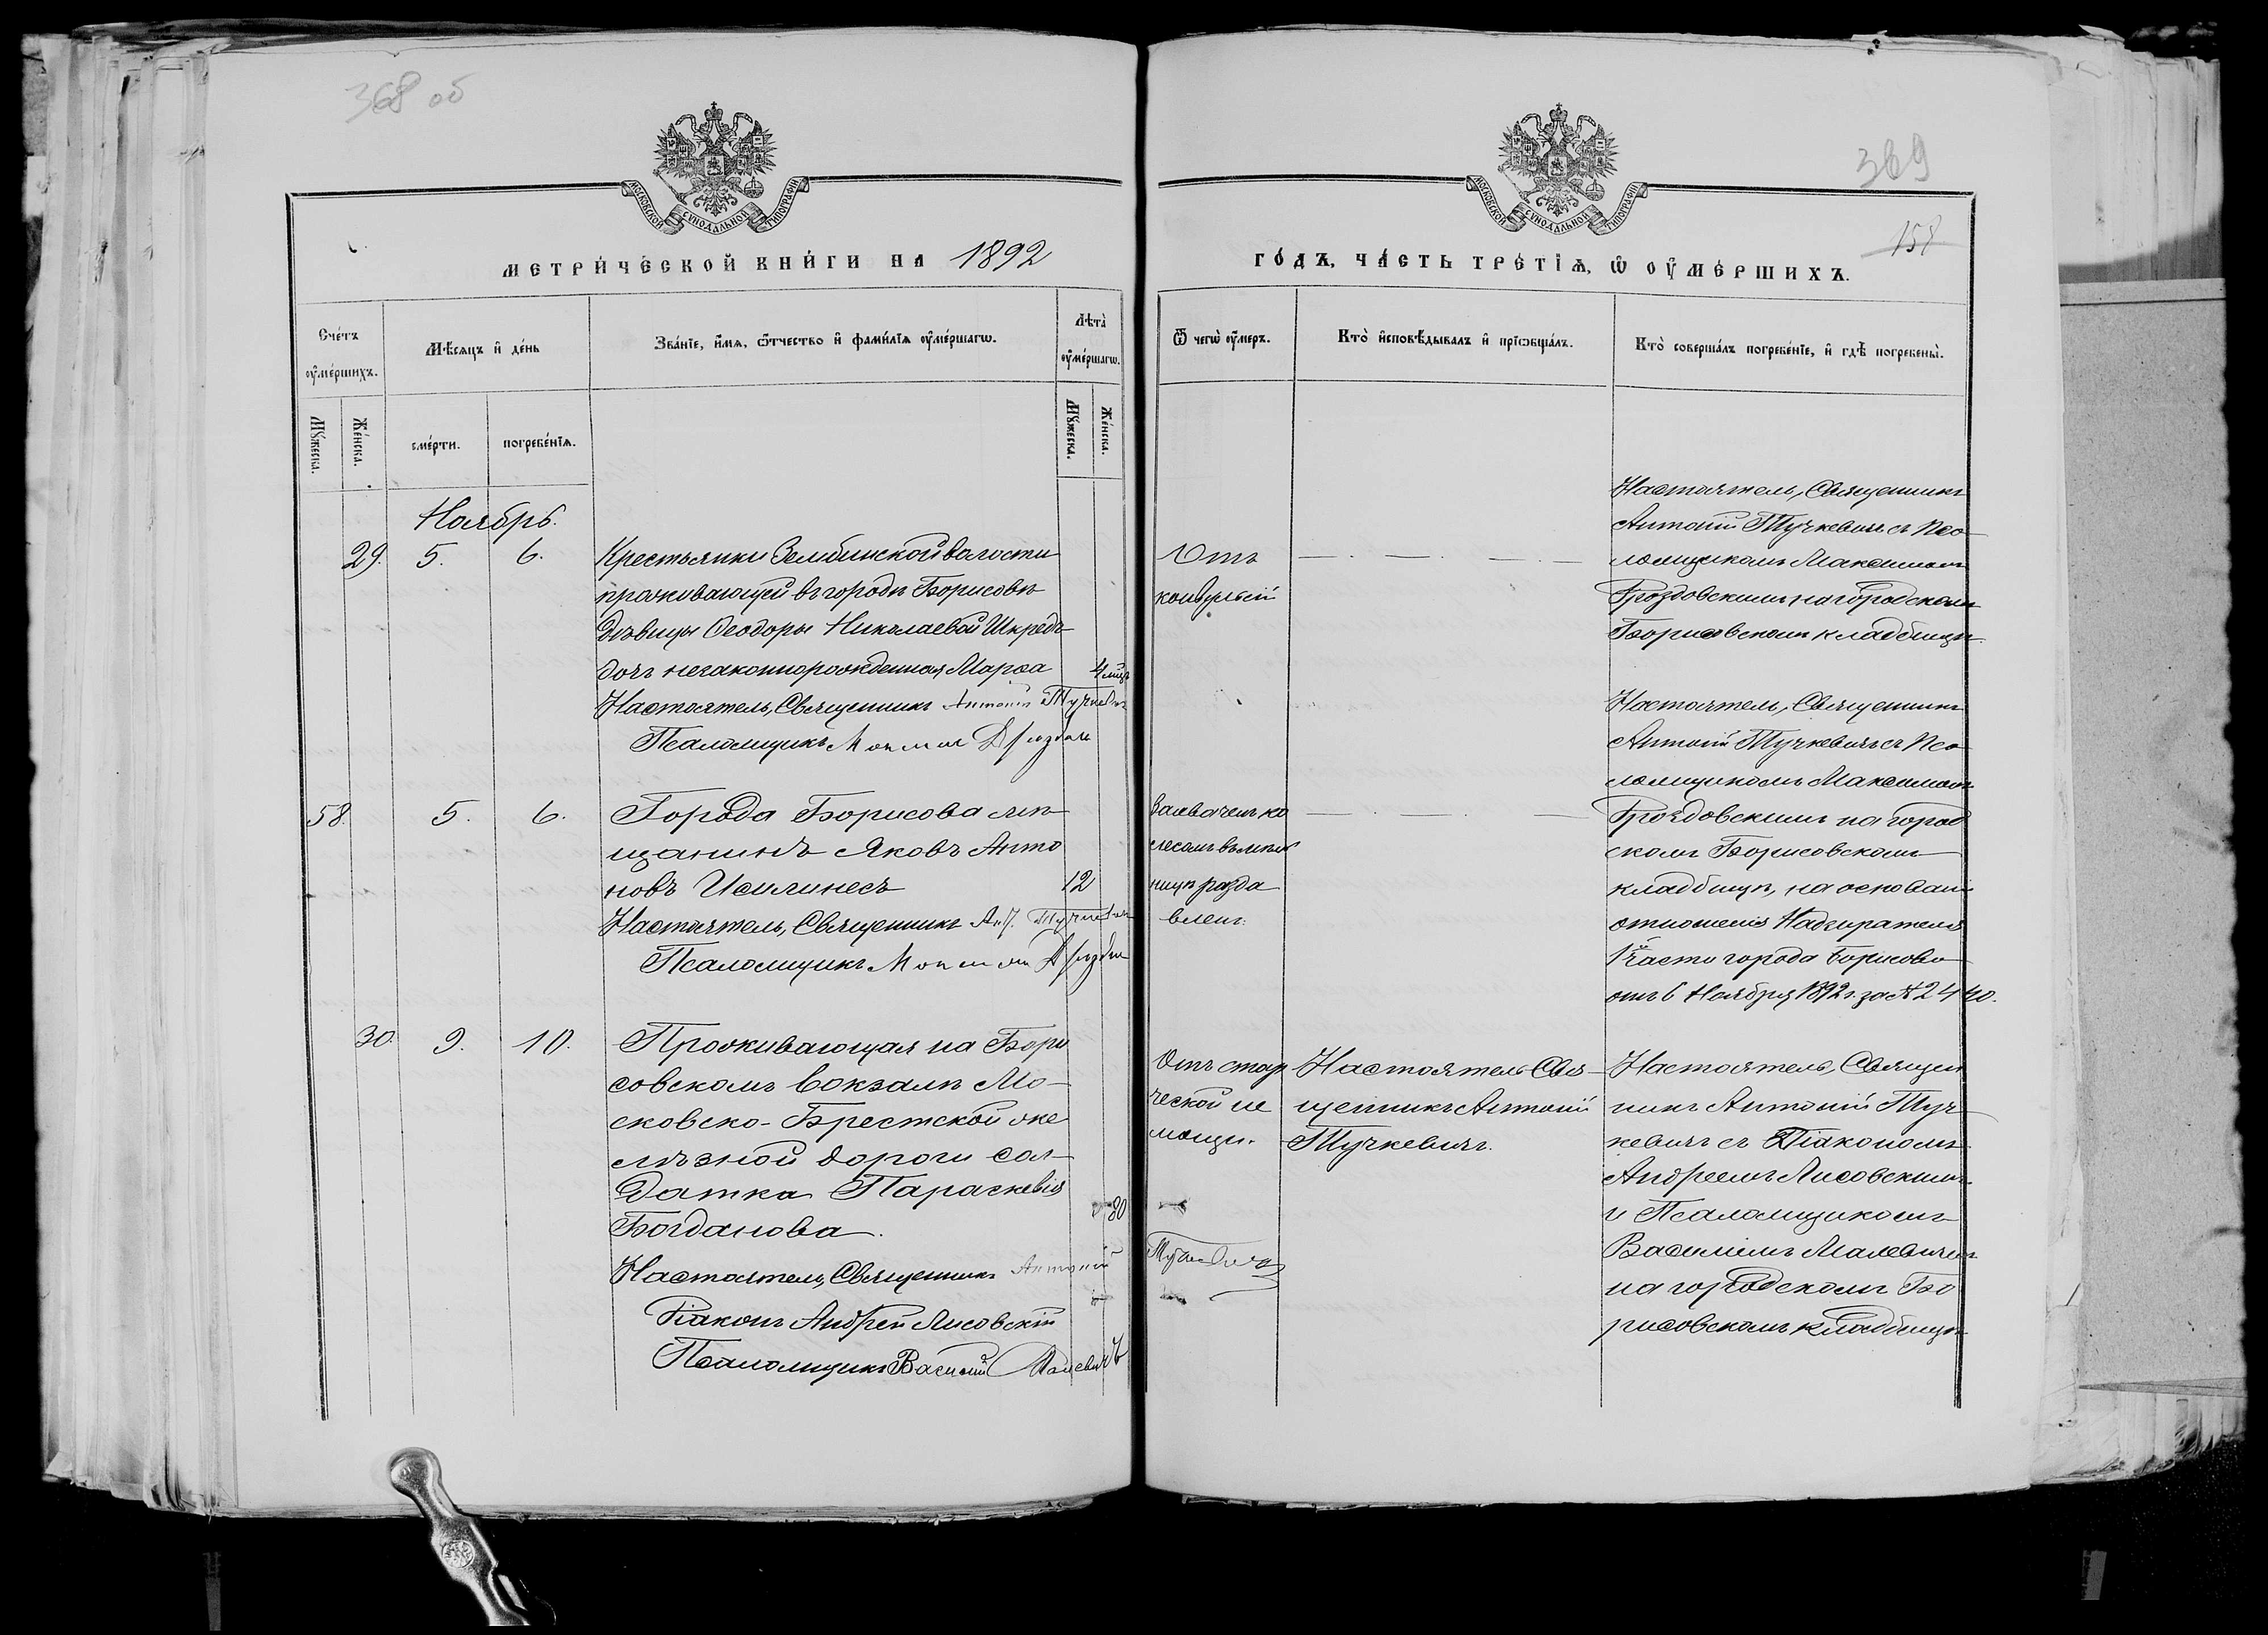 368 об
МОСКОВСКОЙ СѴНОДАЛЬНОЙ ТИПОГРАФІИ
МЕТРИ́ЧЕСКОЙ КНИ́ГИ НА 1892
Сче́тъ ᲂу҆ме́ршихъ.
Мѣ́сяцъ и҆ де́нь
Зва́нїе, и҆́мѧ, ѻ҆́тчество и҆ фамѝлїѧ ᲂу҆ме́ршагѡ.
Лѣта̀ ᲂу҆ме́ршагѡ.
Мꙋ́жеска.
Же́нска.
сме́рти.
погребе́нїѧ.
Мꙋ́жеска.
Же́нска.
Ноябрь.
29. 5. 6.
Крестьянки Зембинской волости
проживающей въ городѣ Борисовѣ
дѣвицы Ѳеодоры Николаевой Шкредъ
дочь незаконнорожденная Марѳа 4 мѣц.
Настоятель, Священникъ Антоній Тучкевичъ
Псаломщикъ
58. 5. 6.
Города Борисова мѣ
щанинъ Яковъ Анто
новъ 12
Настоятель, Священникъ Ант. Тучкевичъ
Псаломщикъ
30. 9. 10.
Проживающая на Бори
совскомъ вокзалѣ Мо-
сковско-Брестской же
лѣзной дороги сол-
датка Параскевія
Богданова. 80
Настоятель, Священникъ Антоній Тучкевичъ
Діаконъ Андрей Лисовскій
Псаломщикъ Василій Малевичъ
369
158
МОСКОВСКОЙ СѴНОДАЛЬНОЙ ТИПОГРАФІИ
ГО́ДЪ, ЧА́СТЬ ТРЕ́ТЇѦ, Ѡ҆ ОУ҆МЕ́РШИХЪ.
Ѿ чегѡ̀ ᲂу҆́меръ.
Кто̀ и҆сповѣ́дывалъ и҆ прїѡбща́лъ.
Кто̀ соверша́лъ погребе́нїе, и҆ гдѣ̀ погребены̀.
Отъ
конвульсій
Настоятель, Священникъ
Антоній Тучкевичъ съ Пса-
ломщикомъ Максимомъ
Дроздовскимъ на городскомъ
Борисовскомъ кладбищѣ.
колесомъ въ мель
ницѣ разда
вленъ.
Настоятель, Священникъ
Антоній Тучкевичъ съ Пса-
ломщикомъ Максимомъ
Дроздовскимъ на город
скомъ Борисовскомъ
кладбищѣ, на основаніи
отношенія Надзирателя
1й части города Борисова
отъ 6 Ноября 1892 г. за № 2440.
Отъ стар
ческой не
мощи.
Настоятель Свя-
щенникъ Антоній
Тучкевичъ.
Настоятель, Священ
никъ Антоній Туч
кевичъ съ Діакономъ
Андреемъ Лисовскимъ
и Псаломщикомъ
Василіемъ Малевичемъ
на городскомъ Бо
рисовскомъ кладбищѣ.